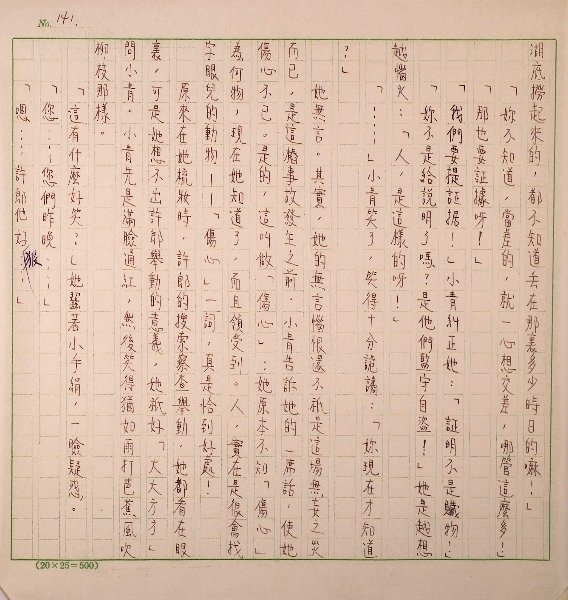 No. 141.
湖底撈起來的，都不知道丟在那裏多少時日的嘛！」
「妳不知道，當差的，就一心想交差，哪管這麼多！」
「那也要証據呀！」
「我們要提証据！」小青糾正她：「証明不是贓物！
妳不是給說明了嗎？是他們監守自盜！」她是越想
越惱火：「人，是這樣的呀！」
「⋯⋯」小青笑了，笑得十分詭譎：「妳現在才知道
？」
她無言。其實，她的無言懊恨還不祇是這場無妄之災
而已，是這樁事故發生之前，小青告訴她的一席話，使她
傷心不已。是的，這叫做「傷心」；她原本不知「傷心」
為何物，現在她知道了，而且領受到。人，實在是很會找
字眼兒的動物——「傷心」一詞，真是恰到好處！
原來在她梳妝時，許郎的搜索察查舉動，她都看在眼
裏，可是她想不出許郎舉動的意義，她祇好「大大方方」
問小青。小青先是滿臉通紅，然後笑得猶如雨打芭蕉風吹
柳枝那樣。
「這有什麼好笑？」她蹙著小手絹，一臉疑惑。
「您⋯⋯您們昨晚⋯⋯」
「嗯⋯⋯許郎他好狠⋯⋯」
(20×25=500)